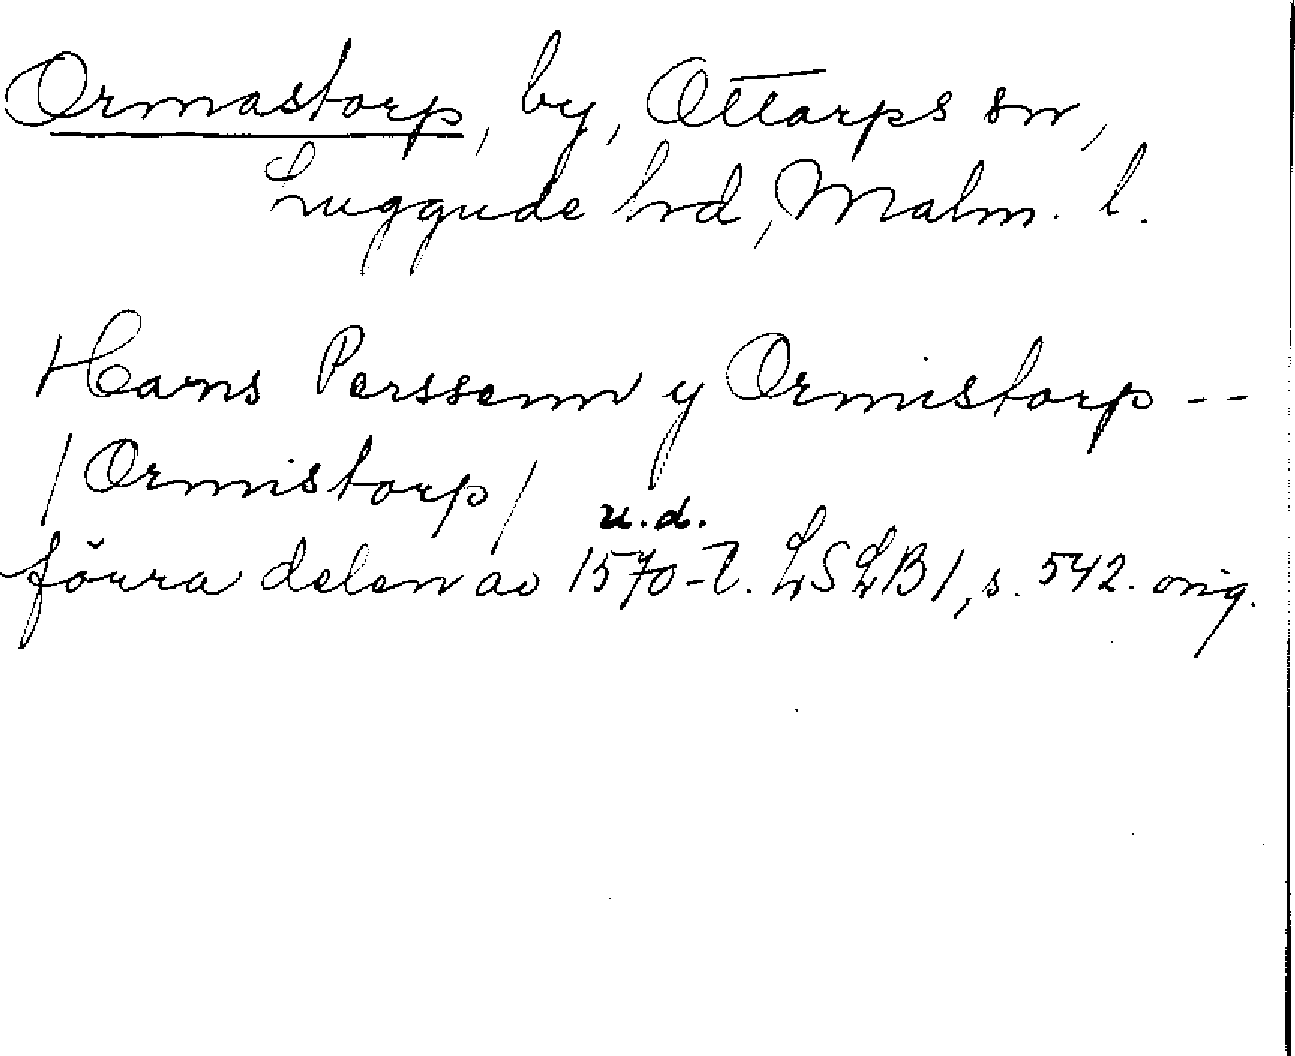 Ormastorp, by, Ottarps sn,
Luggude hd, Malm. l.
Hans Perssenn y Ormistorp --
/Ormistorp/
u.d.
förra delen av 1570-t. LSLB 1, s. 542. orig.